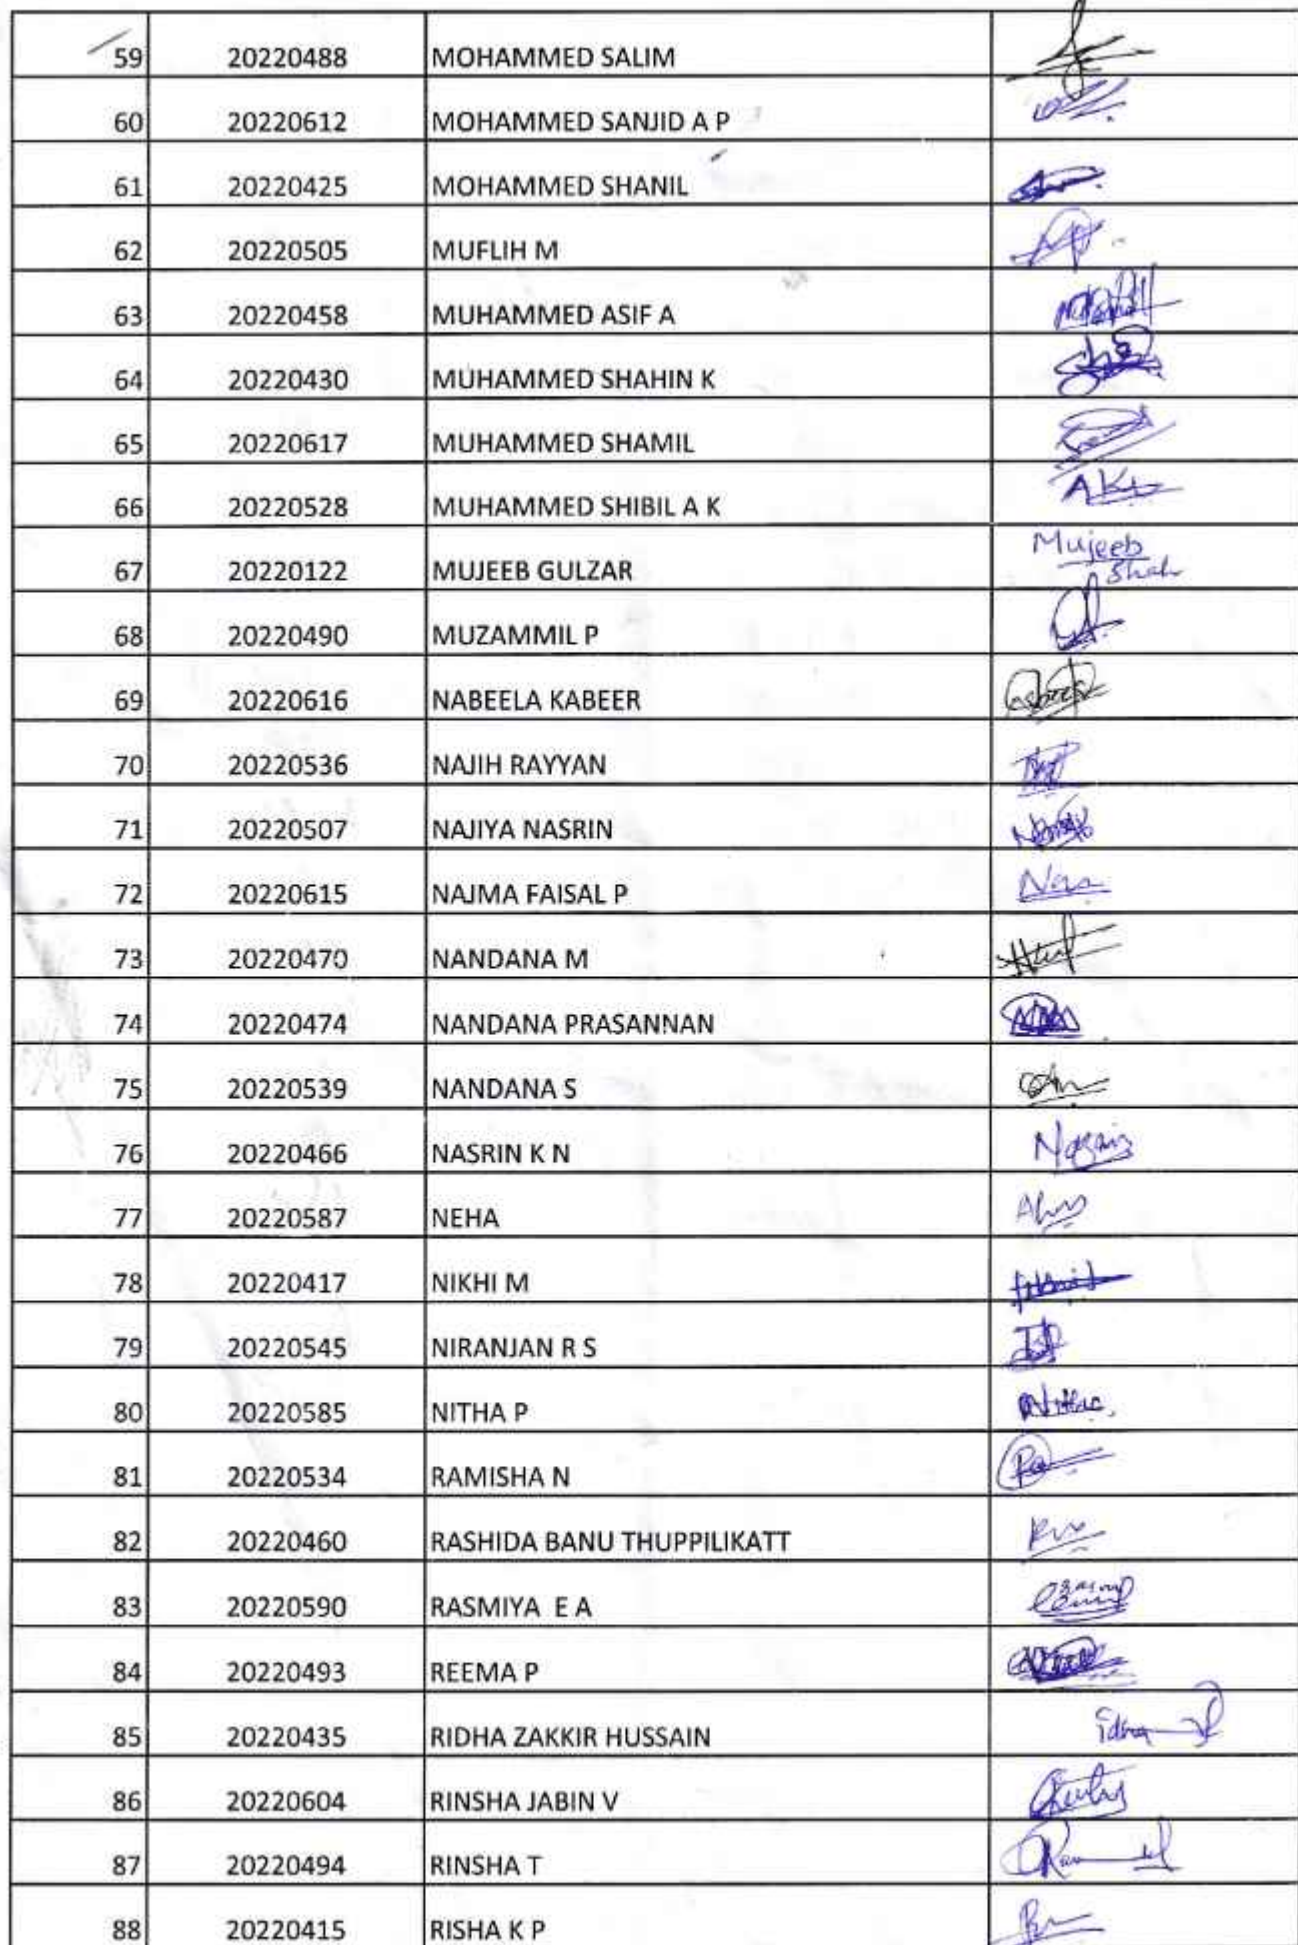 59 20220488 MOHAMMED SALIM
60 20220612 MOHAMMED SANJID A P
61 20220425 MOHAMMED SHANIL
62 20220505 MUFLIH M
63 20220458 MUHAMMED ASIF A
64 20220430 MUHAMMED SHAHIN K
65 20220617 MUHAMMED SHAMIL
66 20220528 MUHAMMED SHIBIL A K
67 20220122 MUJEEB GULZAR Mujeeb Shah
68 20220490 MUZAMMIL P
69 20220616 NABEELA KABEER
70 20220536 NAJIH RAYYAN
71 20220507 NAJIYA NASRIN
72 20220615 NAJMA FAISAL P
73 20220470 NANDANA M
74 20220474 NANDANA PRASANNAN
75 20220539 NANDANA S
76 20220466 NASRIN K N
77 20220587 NEHA
78 20220417 NIKHI M
79 20220545 NIRANJAN R S
80 20220585 NITHA P
81 20220534 RAMISHA N
82 20220460 RASHIDA BANU THUPPILIKATT
83 20220590 RASMIYA E A
84 20220493 REEMA P
85 20220435 RIDHA ZAKKIR HUSSAIN
86 20220604 RINSHA JABIN V
87 20220494 RINSHA T
88 20220415 RISHA K P